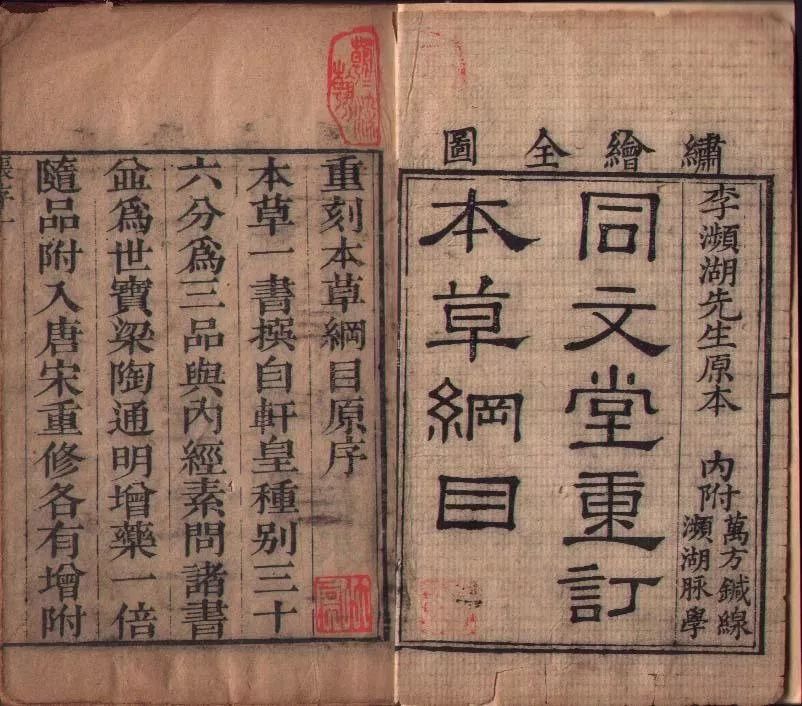 繡繪全圖
李瀕湖先生原本 內附萬方鍼線
瀕湖脉學
同文堂重訂
本草綱目
重刻本草綱目原序
本草一書撰自軒皇種別三十
六分爲三品與內經素問諸書
並爲世寶梁陶通明增藥一倍
隨品附入唐宋重修各有增附